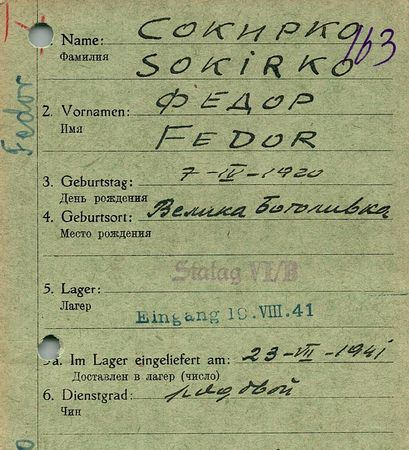 1. Name: СОКИРКО 163
Фамилия SOKIRKO
2. Vornamen: ФЕДОР
Имя FEDOR
Fedor
3. Geburtstag: 7-IV-1920
День рождения
4. Geburtsort: Велика
Место рождения
Stalag VI/B
5. Lager:
Лагер
Eingang 19.VIII.41
5a. Im Lager eingeliefert am: 23-VII-1941
Доставлен в лагер (число)
6. Dienstgrad: рядовой
Чин